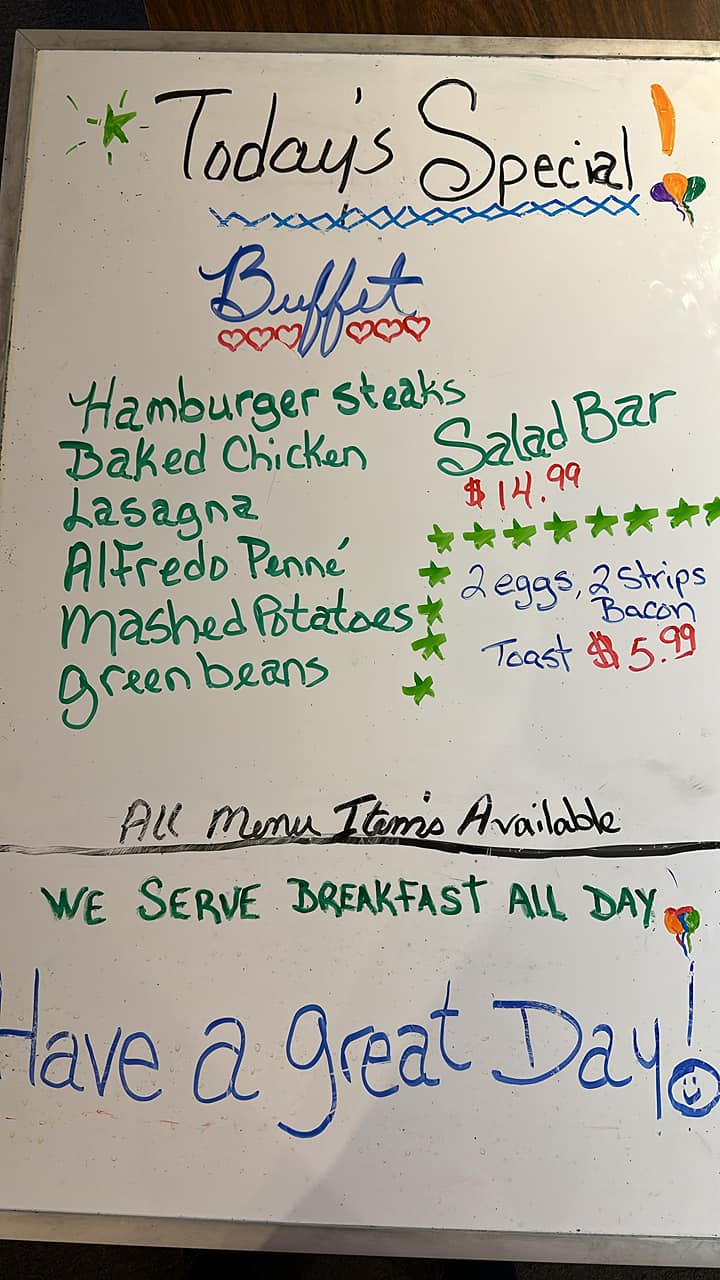 Today's Special!
Buffet
Hamburger steaks
Baked Chicken
Lasagna
Alfredo Penné
Mashed Potatoes
green beans
Salad Bar
$14.99
2 eggs, 2 strips
Bacon
Toast $5.99
All Menu Item's Available
WE SERVE BREAKFAST ALL DAY
Have a great Day!